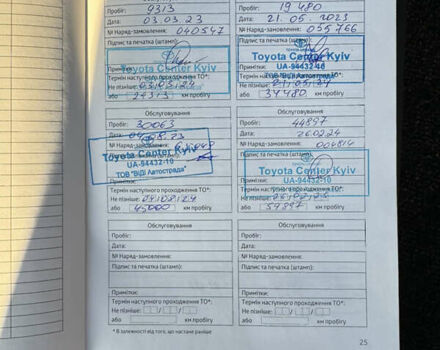 Пробіг: 9313
Дата: 03.03.23
№ Наряд-замовлення: 040547
Підпис та печатка (штамп):
Toyota Center Kyiv
UA-94432-10
Примітки:
Термін наступного проходження ТО*:
Не пізніше: 03.03.24
або 24313 км пробігу
Пробіг: 19 480
Дата: 21.05.2023
№ Наряд-замовлення: 055766
Підпис та печатка (штамп):
Toyota Center Kyiv
UA-94432-10
Примітки:
Термін наступного проходження ТО*:
Не пізніше: 21.05.24
або 34480 км пробігу
Обслуговування
Пробіг: 30063
Дата: 04.08.23
№ Наряд-замовлення:
Toyota Center Kyiv
UA-94432-10
ТОВ "ВІДІ Автострада"
Термін наступного проходження ТО*:
Не пізніше: 04.08.24
або 45000 км пробігу
Обслуговування
Пробіг: 44897
Дата: 260224
№ Наряд-замовлення: 004814
Підпис та печатка (штамп):
Toyota Center Kyiv
Примітки: UA-94432-10
ТОВ "ВІДІ Автострада"
Термін наступного проходження ТО*:
Не пізніше: 26.02.25
або 59897 км пробігу
Обслуговування
Пробіг:
Дата:
№ Наряд-замовлення:
Підпис та печатка (штамп):
Примітки:
Термін наступного проходження ТО*:
Не пізніше:
або км пробігу
Обслуговування
Пробіг:
Дата:
№ Наряд-замовлення:
Підпис та печатка (штамп):
Примітки:
Термін наступного проходження ТО*:
Не пізніше:
або км пробігу
* В залежності від того, що настане раніше
25